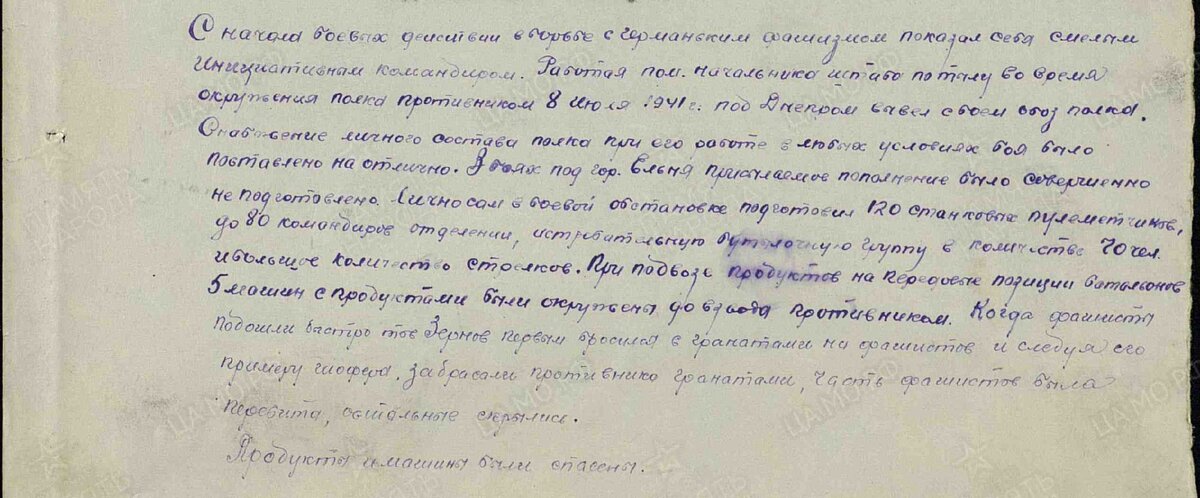 С начала боевых действии в борьбе с германским фашизмом показал себя смелым
инициативным командиром. Работая пом. начальника штаба по тылу во время
окружения полка противником 8 июля 1941 г. под Днепром вывел с боем обоз полка.
Снабжение личного состава полка при его работе в любых условиях боя было
поставлено на отлично. В боях под гор. Ельня присылаемое пополнение было совершенно
не подготовлено. Лично сам в боевой обстановке подготовил 120 станковых пулеметчиков,
до 80 командиров отделении, истребительную бутылочную группу в количестве 70 чел.
и большое количество стрелков. При подвозе продуктов на передовые позиции батальонов
5 машин с продуктами были окружены до взвода противником. Когда фашисты
подошли быстро тов Зернов первым бросился с гранатами на фашистов и следуя его
примеру шофера, забрасали противника гранатами, часть фашистов была
перебита, остальные скрылись.
Продукты и машины были спасены.
ЦАМО РФ